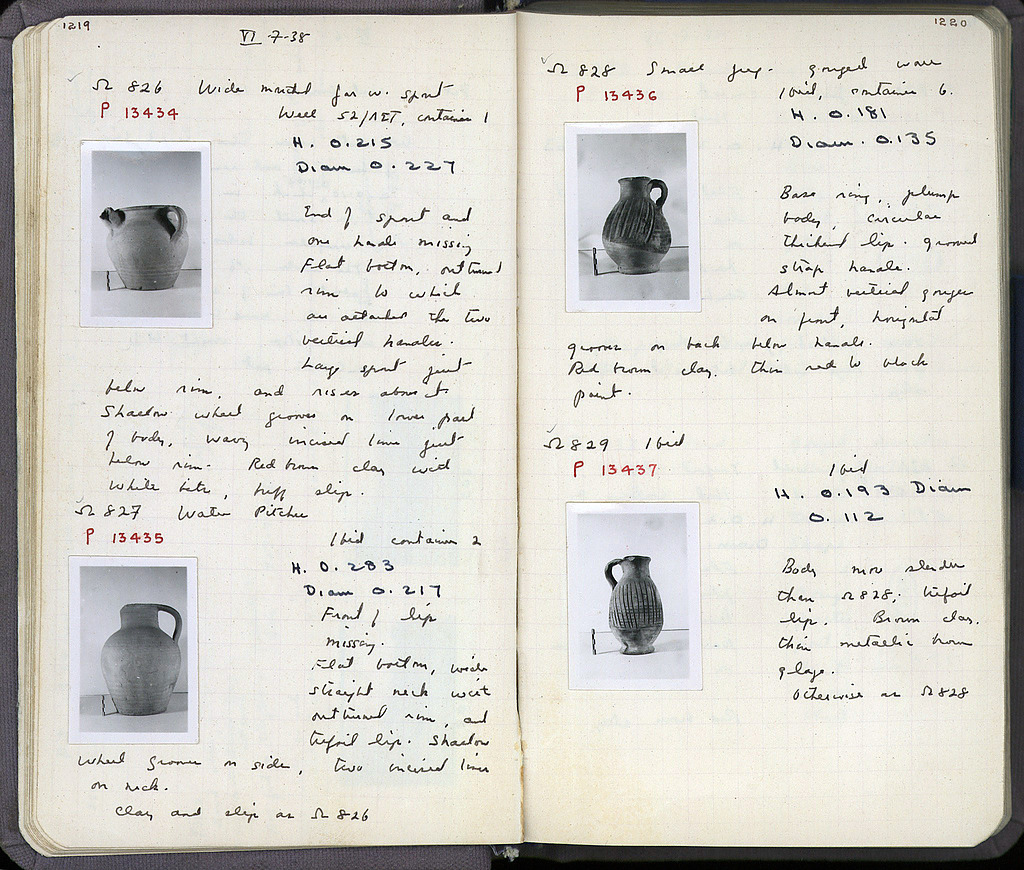 1219
VI 7-38
Ω 826 Wide mouthed jar w. spout
P 13434
Well 52/ , container 1
H. 0.215
Diam 0.227
End of spout and
one handle missing
Flat bottom, outturned
rim to which
are attached the two
vertical handles.
Large spout just
below rim, and rises above it.
Shallow wheel grooves on lower part
of body, wavy incised line just
below rim. Red brown clay with
white bits, buff slip.
Ω 827 Water Pitcher
P 13435
Ibid container 2
H. 0.283
Diam 0.217
Front of lip
missing.
Flat bottom, wide
straight neck with
outturned rim, and
trefoil lip. Shallow
wheel grooves on side, two incised lines
on neck.
Clay and slip as Ω 826
1220
Ω 828 Small jug. gouged ware
P 13436
Ibid, container 6.
H. 0.181
Diam. 0.135
Base ring, plump
body, circular
thickened lip. grooved
strap handle.
Almost vertical gouges
on front, horizontal
grooves on back below handle.
Red brown clay, thin red to black
paint.
Ω 829 Ibid
P 13437
Ibid
H. 0.193 Diam
0.112
Body more slender
than Ω 828, trefoil
lip. Brown clay,
thin metallic brown
glaze.
Otherwise as Ω 828